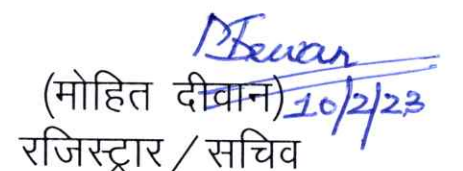 (मोहित दीवान) 10/2/23
रजिस्ट्रार / सचिव